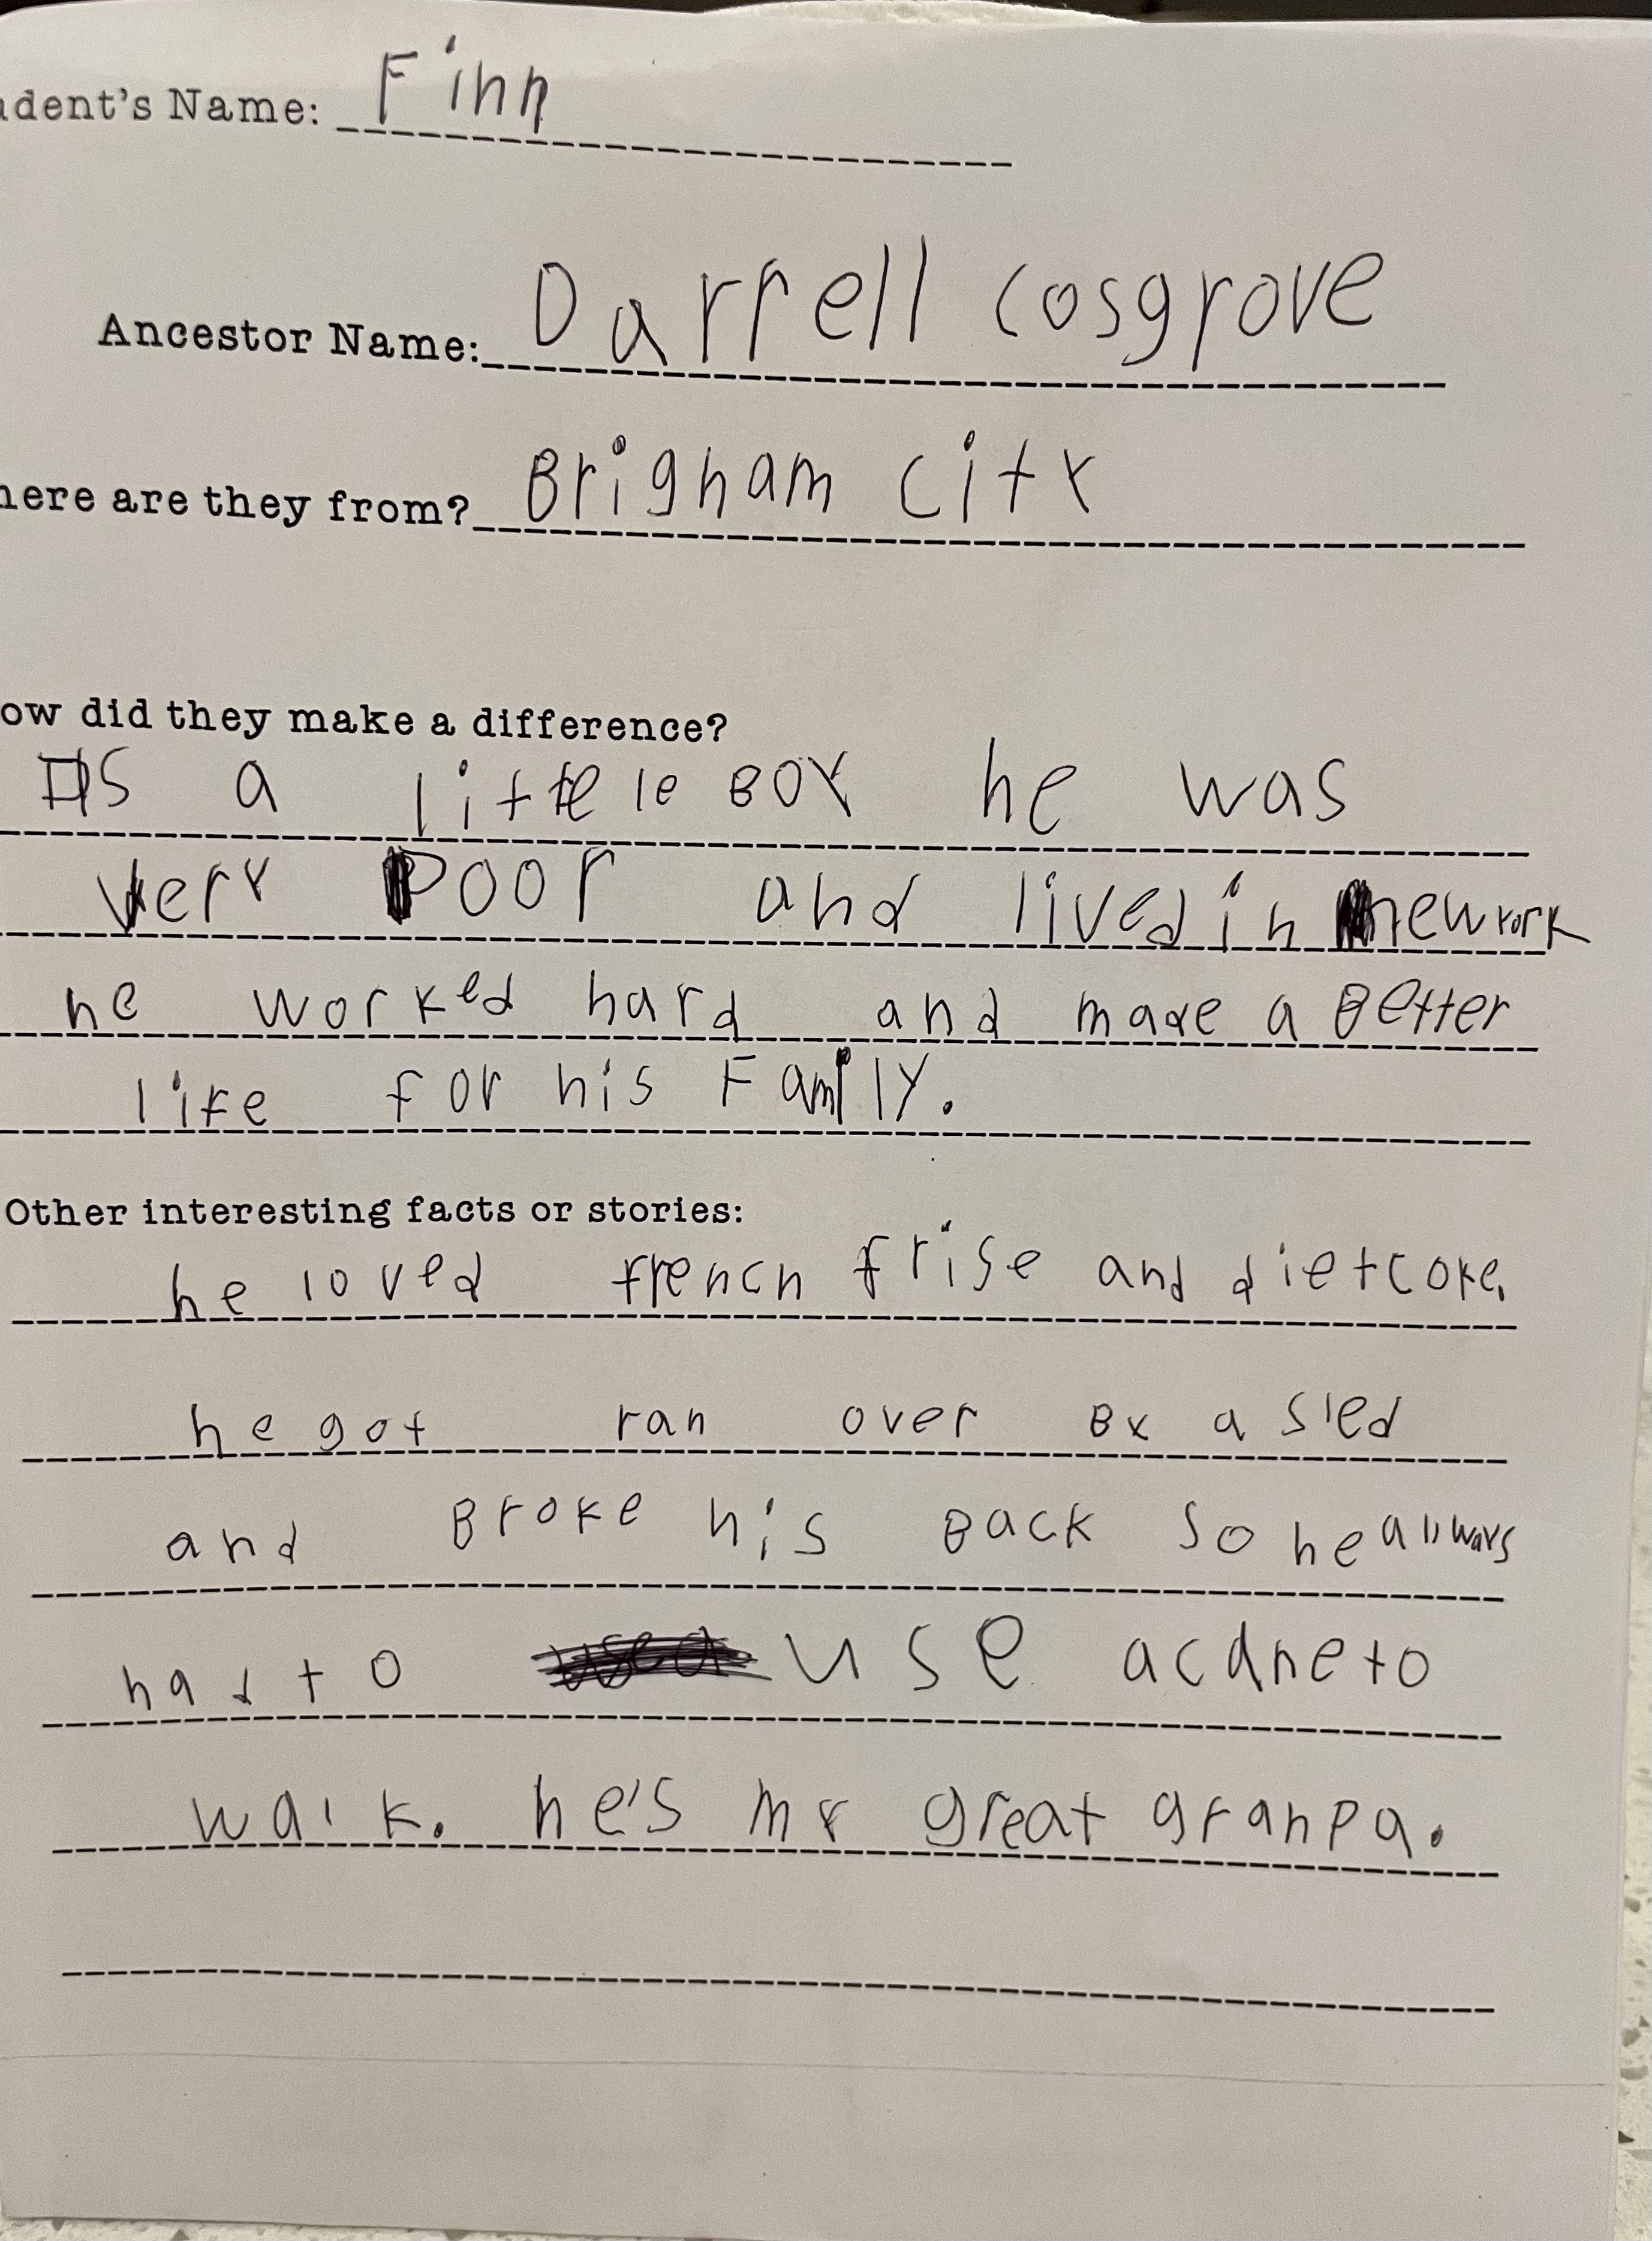 udent's Name: Finn
Ancestor Name: Darrell Cosgrove
here are they from? Brigham City
ow did they make a difference?
As a little le BOY he was
very Poor and lived in newyork
he worked hard and made a Better
life for his Family.
Other interesting facts or stories:
he loved french frise and dietcoke.
he got ran over By a sled
and Broke his Back so he allways
had to used use acane to
walk. he's my great granpa.